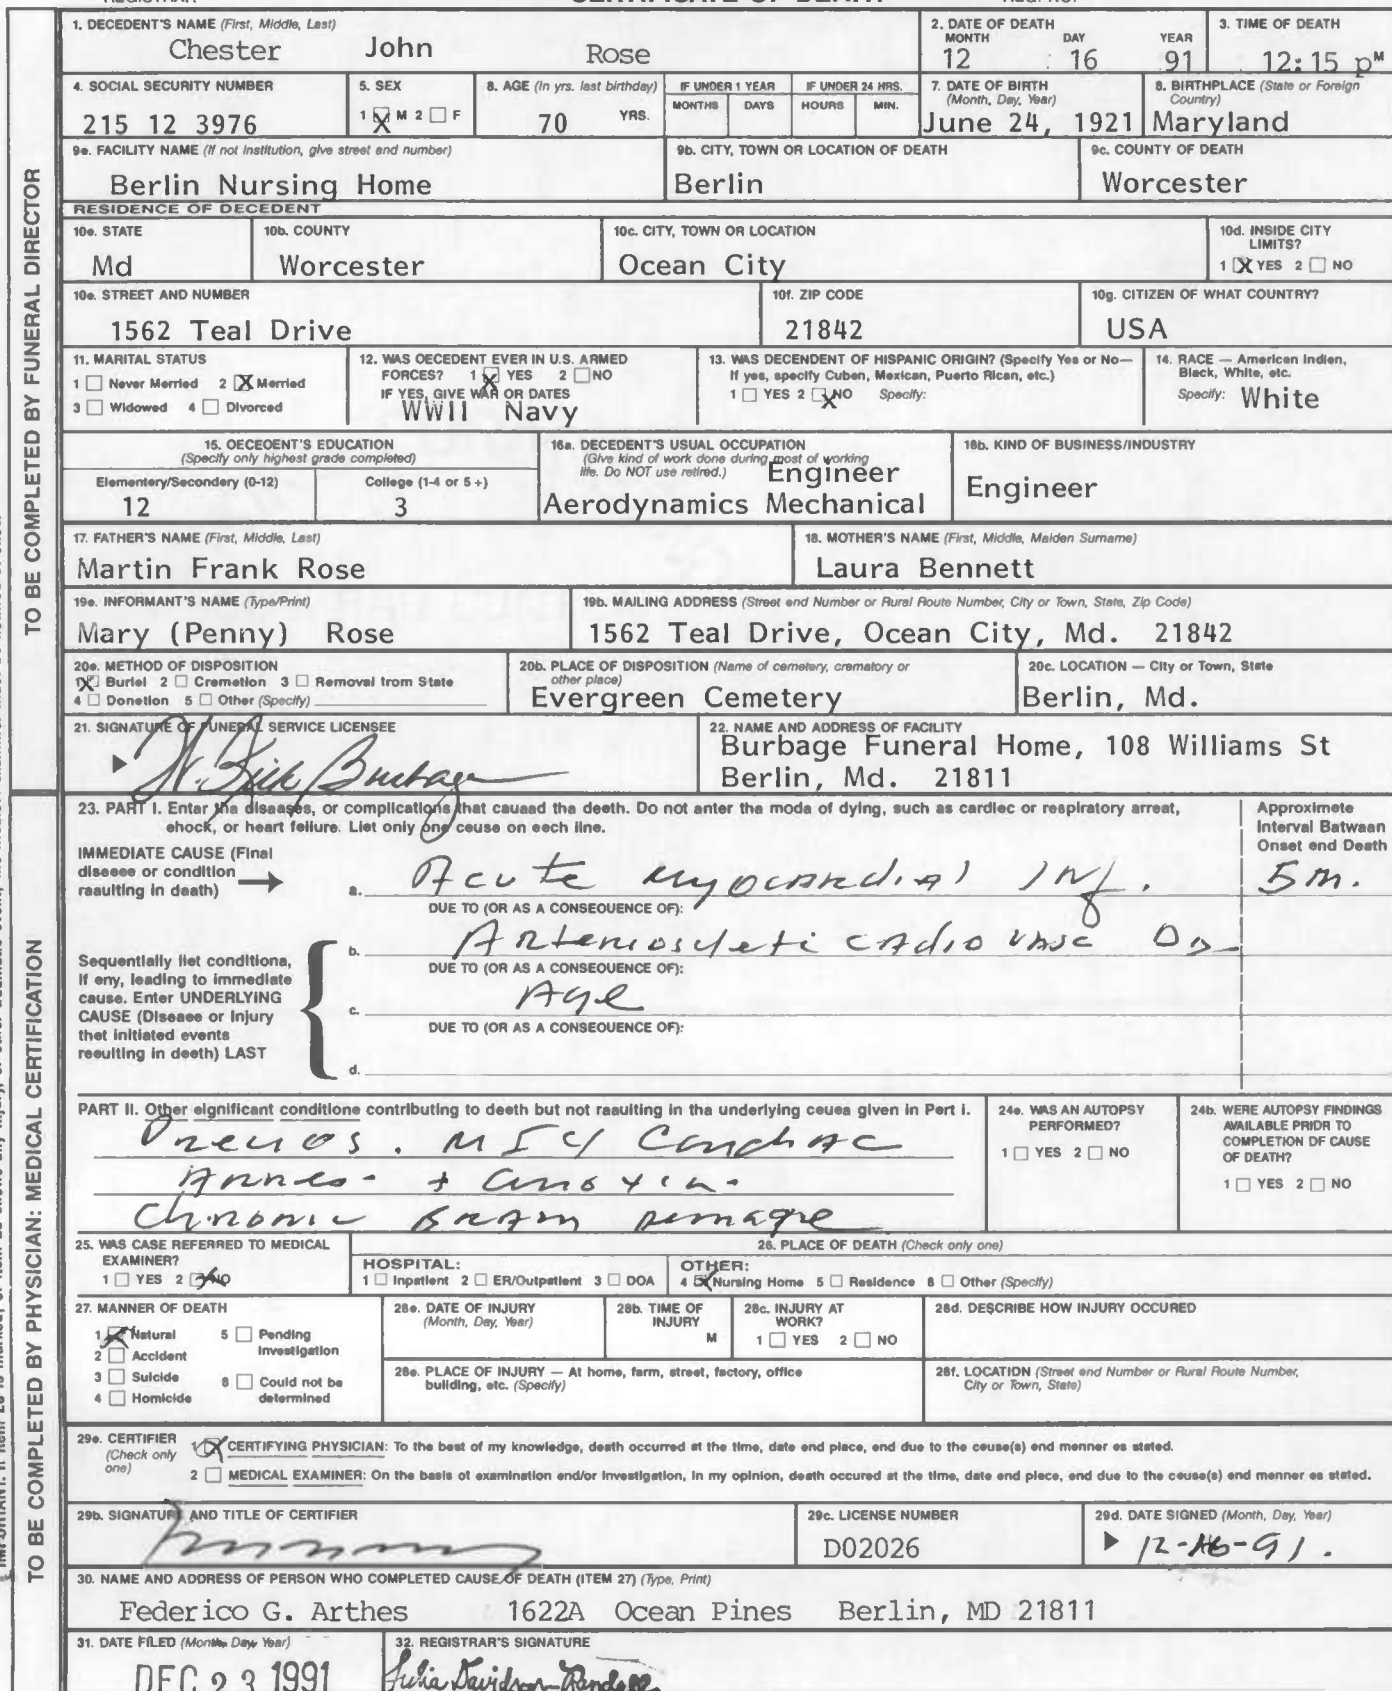 CERTIFICATE OF DEATH
1. DECEDENT'S NAME (First, Middle, Last)
Chester John Rose
2. DATE OF DEATH
MONTH DAY YEAR
12 16 91
3. TIME OF DEATH
12:15 pM
4. SOCIAL SECURITY NUMBER
215 12 3976
5. SEX
1 X M 2 F
6. AGE (In yrs. last birthday)
70 YRS.
IF UNDER 1 YEAR
MONTHS DAYS
IF UNDER 24 HRS.
HOURS MIN.
7. DATE OF BIRTH
(Month, Day, Year)
June 24, 1921
8. BIRTHPLACE (State or Foreign
Country)
Maryland
9a. FACILITY NAME (If not institution, give street and number)
Berlin Nursing Home
9b. CITY, TOWN OR LOCATION OF DEATH
Berlin
9c. COUNTY OF DEATH
Worcester
RESIDENCE OF DECEDENT
10a. STATE
Md
10b. COUNTY
Worcester
10c. CITY, TOWN OR LOCATION
Ocean City
10d. INSIDE CITY
LIMITS?
1 X YES 2 NO
10e. STREET AND NUMBER
1562 Teal Drive
10f. ZIP CODE
21842
10g. CITIZEN OF WHAT COUNTRY?
USA
11. MARITAL STATUS
1 Never Married 2 X Married
3 Widowed 4 Divorced
12. WAS DECEDENT EVER IN U.S. ARMED
FORCES? 1 X YES 2 NO
IF YES, GIVE WAR OR DATES
WWII Navy
13. WAS DECENDENT OF HISPANIC ORIGIN? (Specify Yes or No—
If yes, specify Cuban, Mexican, Puerto Rican, etc.)
1 YES 2 X NO Specify:
14. RACE — American Indian,
Black, White, etc.
Specify: White
15. DECEDENT'S EDUCATION
(Specify only highest grade completed)
Elementary/Secondary (0-12)
12
College (1-4 or 5+)
3
16a. DECEDENT'S USUAL OCCUPATION
(Give kind of work done during most of working
life. Do NOT use retired.)
Engineer
Aerodynamics Mechanical
16b. KIND OF BUSINESS/INDUSTRY
Engineer
17. FATHER'S NAME (First, Middle, Last)
Martin Frank Rose
18. MOTHER'S NAME (First, Middle, Maiden Surname)
Laura Bennett
19a. INFORMANT'S NAME (Type/Print)
Mary (Penny) Rose
19b. MAILING ADDRESS (Street and Number or Rural Route Number, City or Town, State, Zip Code)
1562 Teal Drive, Ocean City, Md. 21842
20a. METHOD OF DISPOSITION
1 X Burial 2 Cremation 3 Removal from State
4 Donation 5 Other (Specify)
20b. PLACE OF DISPOSITION (Name of cemetery, crematory or
other place)
Evergreen Cemetery
20c. LOCATION — City or Town, State
Berlin, Md.
21. SIGNATURE OF FUNERAL SERVICE LICENSEE
Burbage
22. NAME AND ADDRESS OF FACILITY
Burbage Funeral Home, 108 Williams St
Berlin, Md. 21811
TO BE COMPLETED BY FUNERAL DIRECTOR
23. PART I. Enter the diseases, or complications that caused the death. Do not enter the mode of dying, such as cardiac or respiratory arrest,
shock, or heart failure. List only one cause on each line.
Approximate
Interval Between
Onset and Death
IMMEDIATE CAUSE (Final
disease or condition
resulting in death)
a. Acute myocardial Inf. 5 m.
DUE TO (OR AS A CONSEQUENCE OF):
b. Arterioscleti cadio vasc Dis
DUE TO (OR AS A CONSEQUENCE OF):
c. Age
DUE TO (OR AS A CONSEQUENCE OF):
d.
Sequentially list conditions,
if any, leading to immediate
cause. Enter UNDERLYING
CAUSE (Disease or injury
that initiated events
resulting in death) LAST
PART II. Other significant conditions contributing to death but not resulting in the underlying cause given in Part I.
Previos. MI c/ Cardiac
Arres. + anoxia.
Chronic Brain Damage
24a. WAS AN AUTOPSY
PERFORMED?
1 YES 2 NO
24b. WERE AUTOPSY FINDINGS
AVAILABLE PRIOR TO
COMPLETION OF CAUSE
OF DEATH?
1 YES 2 NO
25. WAS CASE REFERRED TO MEDICAL
EXAMINER?
1 YES 2 X NO
26. PLACE OF DEATH (Check only one)
HOSPITAL:
1 Inpatient 2 ER/Outpatient 3 DOA
OTHER:
4 X Nursing Home 5 Residence 6 Other (Specify)
27. MANNER OF DEATH
1 X Natural 5 Pending
Investigation
2 Accident
3 Suicide 6 Could not be
4 Homicide determined
28a. DATE OF INJURY
(Month, Day, Year)
28b. TIME OF
INJURY
M
28c. INJURY AT
WORK?
1 YES 2 NO
28d. DESCRIBE HOW INJURY OCCURED
28e. PLACE OF INJURY — At home, farm, street, factory, office
building, etc. (Specify)
28f. LOCATION (Street and Number or Rural Route Number,
City or Town, State)
29a. CERTIFIER
(Check only
one)
1 X CERTIFYING PHYSICIAN: To the best of my knowledge, death occurred at the time, date and place, and due to the cause(s) and manner as stated.
2 MEDICAL EXAMINER: On the basis of examination and/or investigation, in my opinion, death occured at the time, date and place, and due to the cause(s) and manner as stated.
29b. SIGNATURE AND TITLE OF CERTIFIER
29c. LICENSE NUMBER
D02026
29d. DATE SIGNED (Month, Day, Year)
12-16-91.
30. NAME AND ADDRESS OF PERSON WHO COMPLETED CAUSE OF DEATH (ITEM 27) (Type, Print)
Federico G. Arthes 1622A Ocean Pines Berlin, MD 21811
31. DATE FILED (Month, Day, Year)
DEC 23 1991
32. REGISTRAR'S SIGNATURE
Julia Davidson-Randall
TO BE COMPLETED BY PHYSICIAN: MEDICAL CERTIFICATION